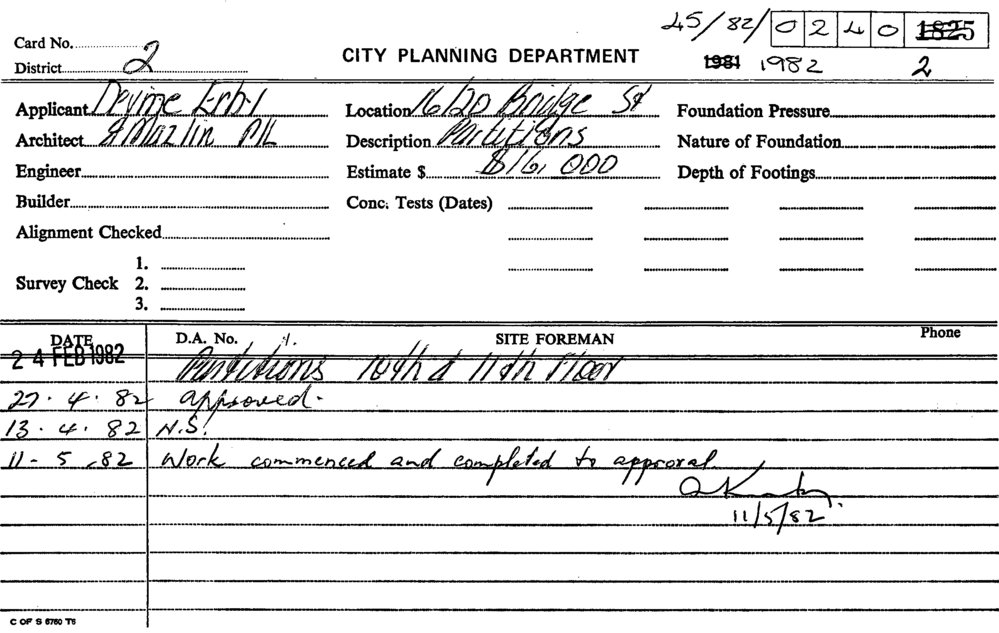 45/82/ 0 2 4 0 1825
Card No. 2
District
CITY PLANNING DEPARTMENT
1981 1982 2
Applicant Devine Erby
Location 16/20 Bridge St
Foundation Pressure
Architect & Mazlin P/L
Description Partitions
Nature of Foundation
Engineer
Estimate $ $16,000
Depth of Footings
Builder
Conc. Tests (Dates)
Alignment Checked
1.
Survey Check 2.
3.
DATE D.A. No. SITE FOREMAN Phone
24 FEB 1982 Partitions 10th & 11th Floor
27. 4. 82 approved.
13. 4. 82 N.S.
11-5.82 Work commenced and completed to approval.
11/5/82
C OF S 6760 T6